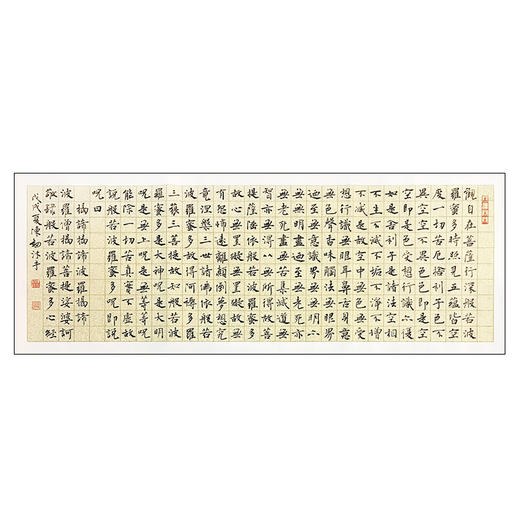 觀自在菩薩行深般若波
羅蜜多時照見五蘊皆空
度一切苦厄舍利子色不
異空空不異色色即是空
空即是色受想行識亦復
如是舍利子是諸法空相
不生不滅不垢不淨不增
不減是故空中無色無受
想行識無眼耳鼻舌身意
無色聲香味觸法無眼界
乃至無意識界無無明亦
無無明盡乃至無老死亦
無老死盡無苦集滅道無
智亦無得以無所得故菩
提薩埵依般若波羅蜜多
故心無罣礙無罣礙故無
有恐怖遠離顛倒夢想究
竟涅槃三世諸佛依般若
波羅蜜多故得阿耨多羅
三藐三菩提故知般若波
羅蜜多是大神咒是大明
咒是無上咒是無等等咒
能除一切苦真實不虛故
說般若波羅蜜多咒即說
咒曰
揭諦揭諦波羅揭諦
波羅僧揭諦菩提娑婆訶
敬錄般若波羅蜜多心經
戊戌夏陳